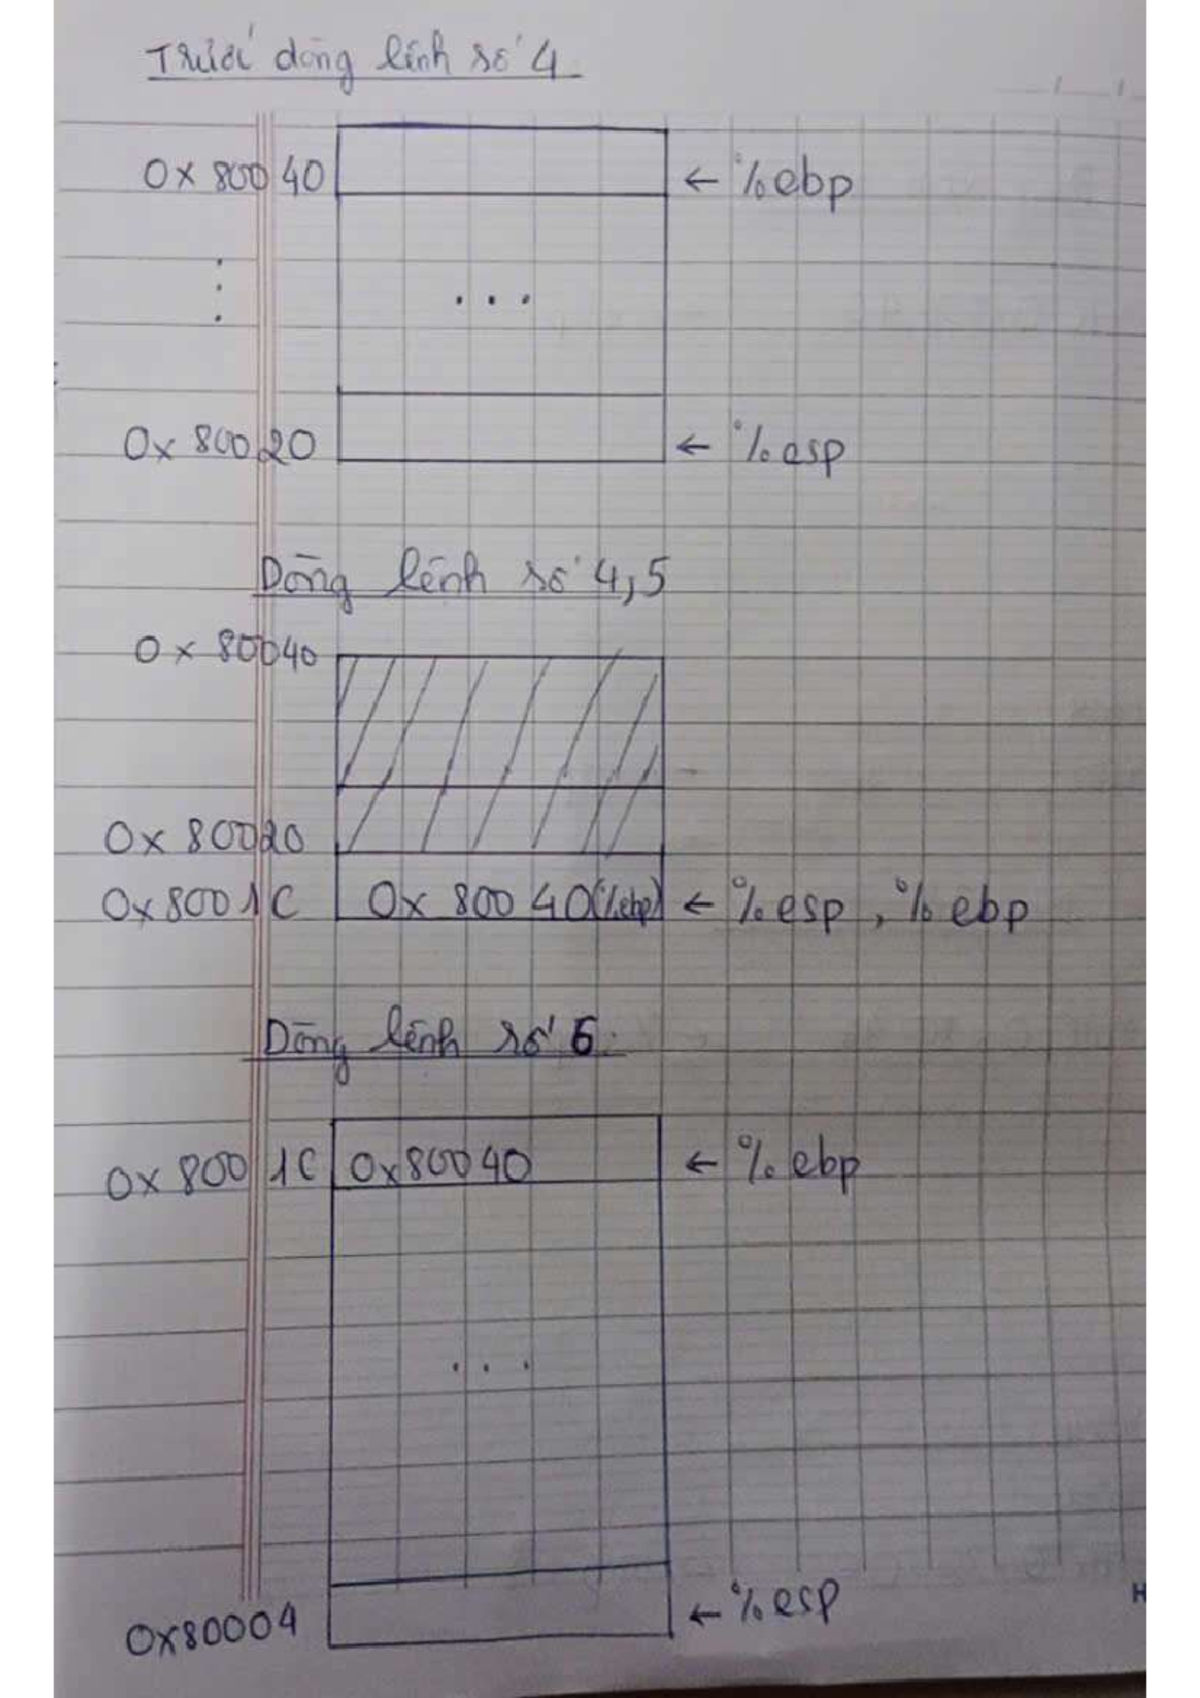 Trước dòng lệnh số 4
0x 80040 ← %ebp
⋮ ...
0x 80020 ← %esp
Dòng lệnh số 4,5
0x 80040
0x 80020
0x 8001C 0x 80040(%ebp) ← %esp, %ebp
Dòng lệnh số 6:
0x 8001C 0x80040 ← %ebp
...
0x80004 ← %esp